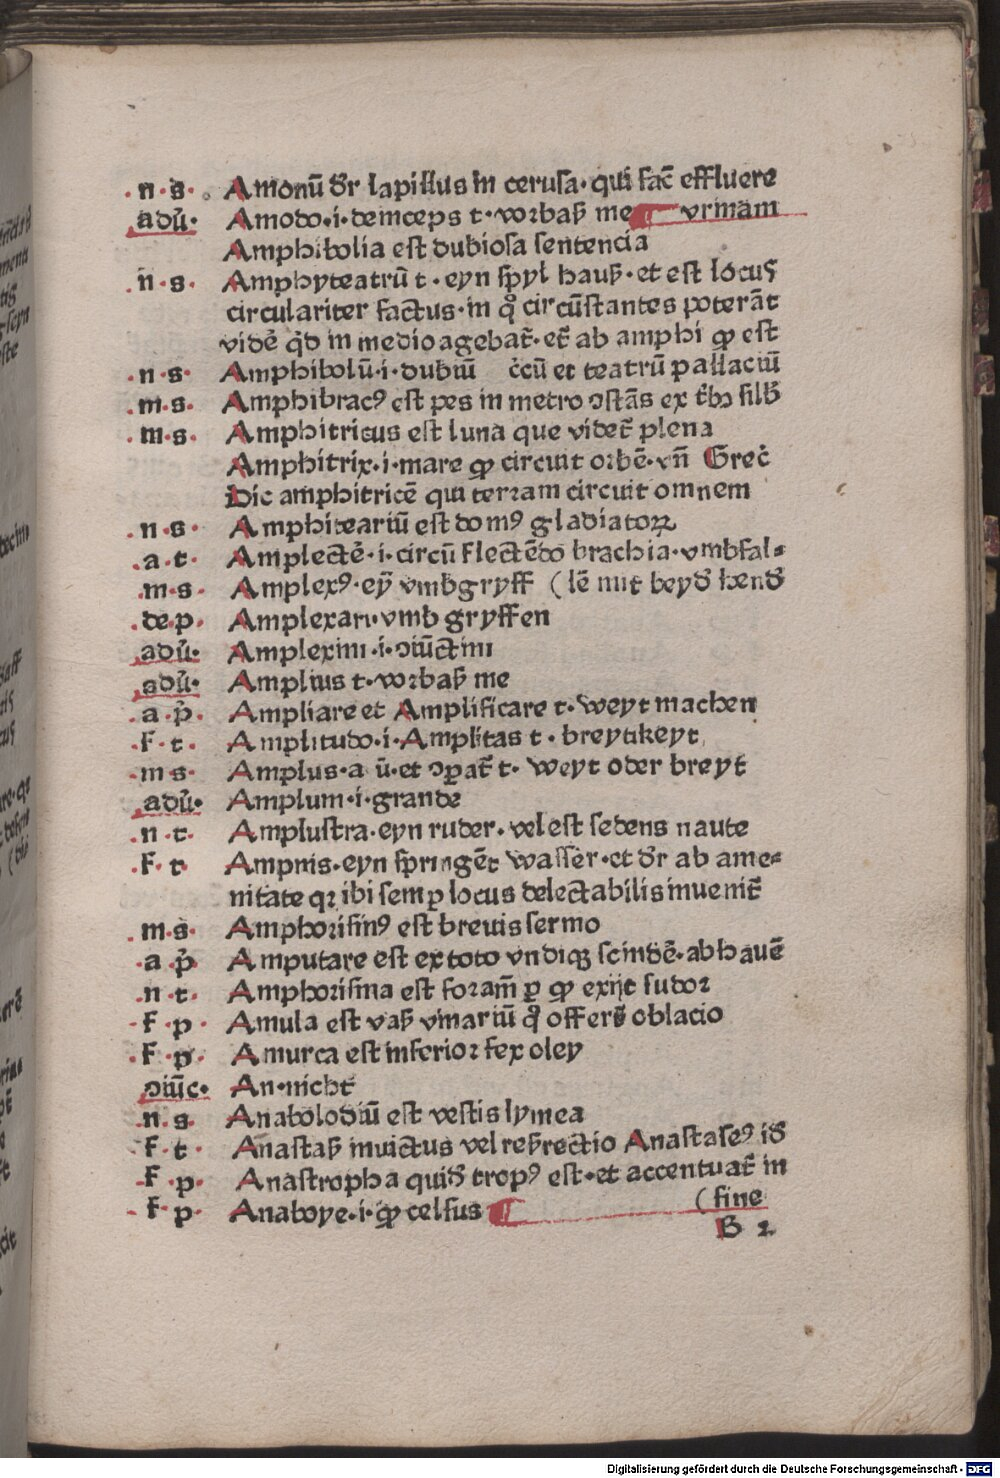 .n.s. Amonū dr̄ lapillus in cerusa· qui fac̄ effluere
adū. Amodo·i·deinceps t·vorbaß me vrinam
Amphibolia est dubiosa sentencia
.n.s. Amphyteatrū t·eyn spyl hauß·et est locus
circulariter factus·in q̊ circūstantes poterāt
vidē q̇d in medio agebat̄·et̄ ab amphi qp est
.n.s. Amphibolū·i·dubiū c̄cū et teatrū pallaciū
.m.s. Amphibracꝰ est pes in metro ↄstās ex tḃꝫ silb̄
.m.s. Amphitritus est luna que videt̄ plena
Amphitrix·i·mare qp circuit orbē·vn̄ Grec̄
Dic amphitricē qui terram circuit omnem
.n.s. Amphiteariū est domꝰ gladiatoꝝ
.a.t. Amplectē·i·circū flectēdo brachia·vmbfal⸗
.m.s. Amplexꝰ·eȳ vmbgryff (lē mit beyd̄ hend̄
.de.p. Amplexari·vmb gryffen
.adū. Amplexim·i·ↄiūctim
.adū. Amplius t·vorbaß me
.a.p̄. Ampliare et Amplificare t·weyt machen
.f.t. Amplitudo·i·Amplitas t·breytikeyt
.m.s. Amplus·a ū·et ↄꝑat̄ t·weyt oder breyt
.adū. Amplum·i·grande
.n.t. Amplustra·eyn ruder·vel est sedens naute
.f.t. Ampnis·eyn springēt wasser·et dr̄ ab ame⸗
nitate qꝛ ibi semꝑ locus delectabilis inuenit̄
.m.s. Amphorismꝰ est breuis sermo
.a.p̄ Amputare est ex toto vndiqꝫ scindē·abhauē
.n.t. Amphorisma est foram̄ ꝑ qp exijt sudor
.f.p. Amula est vaß vinariū q̊ offert̄ oblacio
.f.p. Amurca est inferior fex oley
ↄiūc. An·nicht
.n.s. Anabolodiū est vestis lynea
.f.t. Anastaß inuictus vel reß̄rectio Anastaseꝰ id̄
.f.p. Anastropha quid̄ tropꝰ est·et accentuat̄ in
.f.p. Anaboye·i·qp celsus (fine
B 2
Digitalisierung gefördert durch die Deutsche Forschungsgemeinschaft - DFG